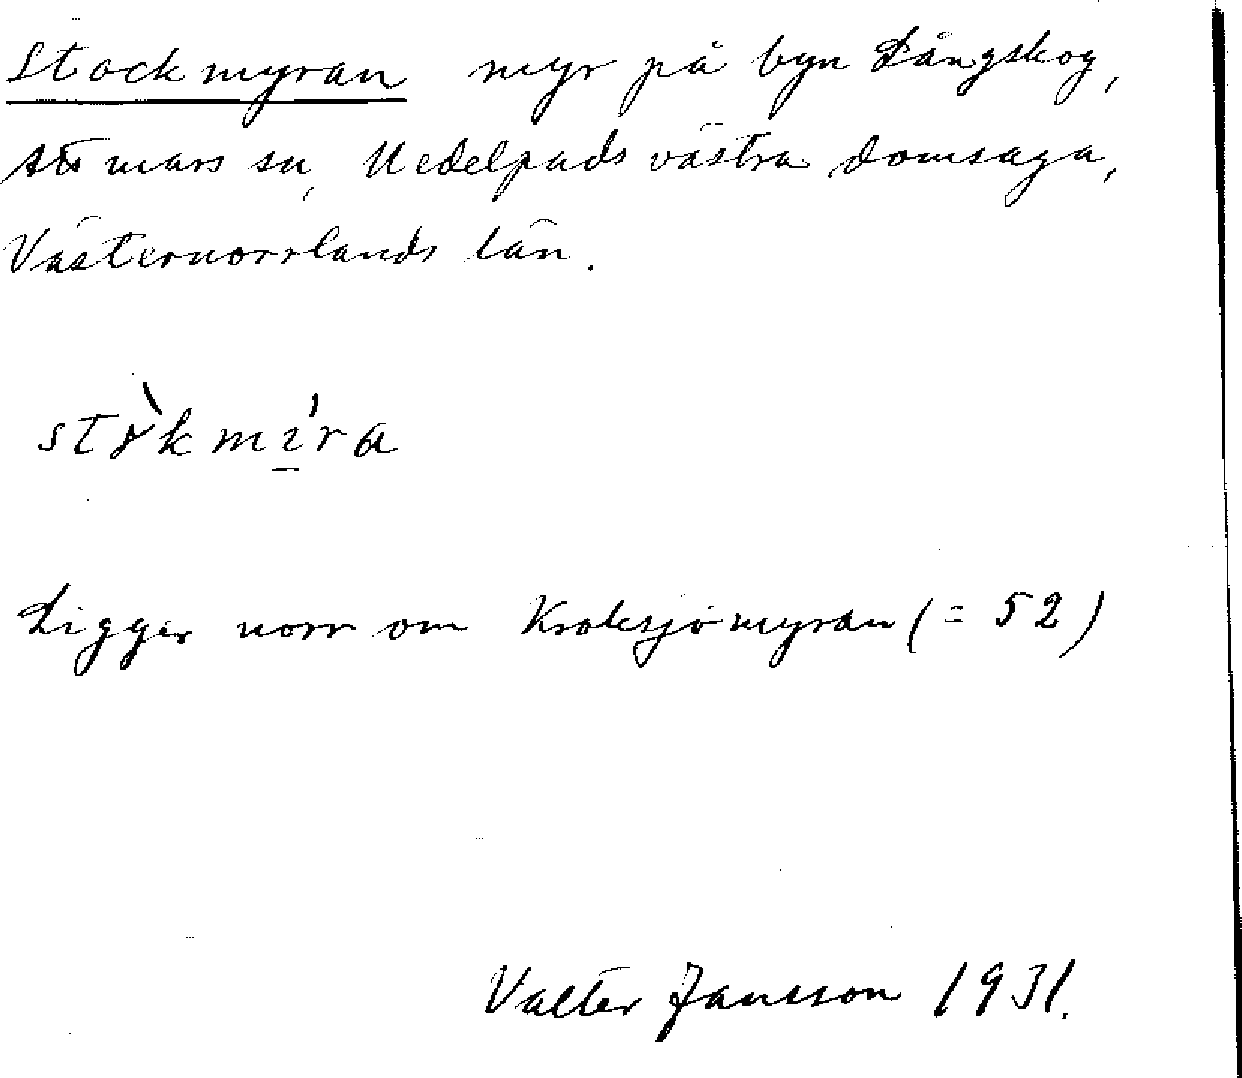 Stockmyran myr på byn Långskog,
Attmars sn, Medelpads västra domsaga,
Västernorrlands län.
Ligger norr om Kroksjömyran (= 52)
Valter Jansson 1931.